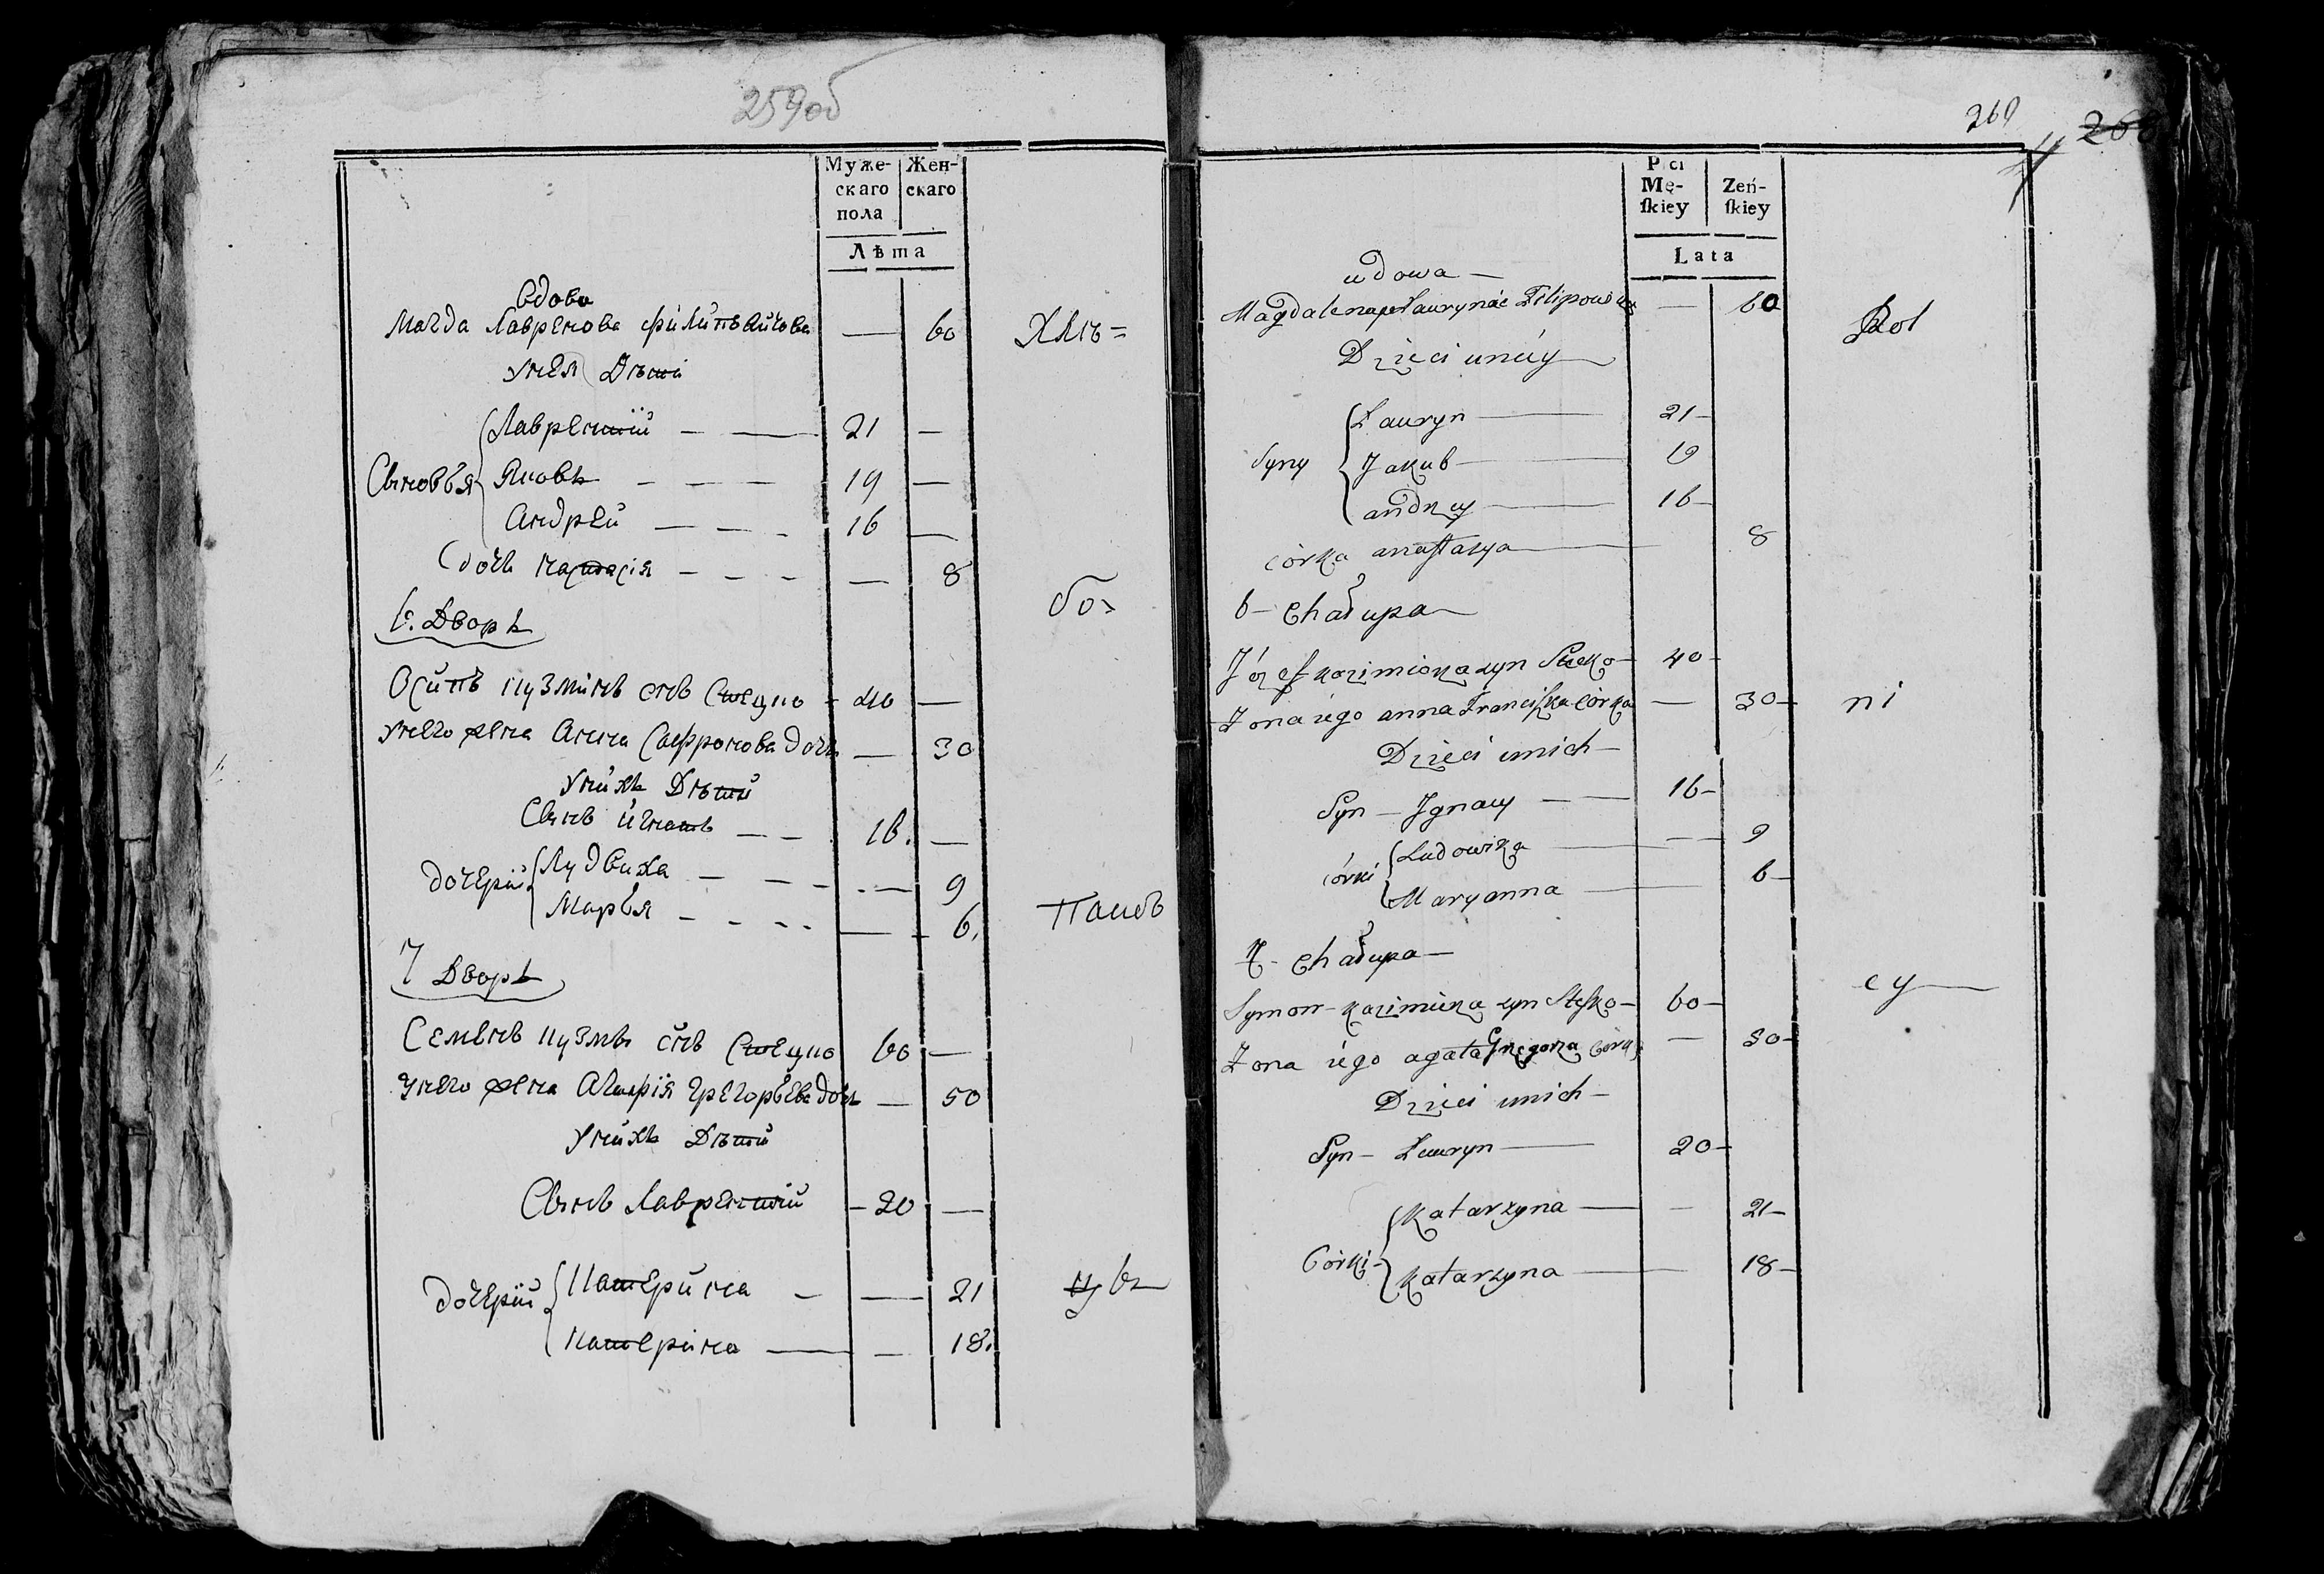 259об
Муже-
скаго
пола
Жен-
скаго
Лѣта
вдова
Магда Лавренова Филиповичова — 60 Хлѣ=
у нея Дѣти
Лаврентій — 21 —
Сыновья Яковъ — 19 —
Андрей — 16 —
дочь Настасія — — 8
бо=
6. Дворъ
Осипъ Кузминъ снъ Стецко - 40 —
у него жена Анна Сафронова дочь — 30
у нихъ Дѣти
Сынъ Игнатъ — 16. —
дочерій Лудвиха — — 9
Марья — — 6.
пашъ
7 Дворъ
Семенъ Кузмы снъ Стецко 60 —
у него жена Агафія Грегорьева дочь — 50
у нихъ Дѣти
Сынъ Лаврентій — 20 —
дочерій Катерина — — 21
цы
Катерина — — 18.
260
Płci
Mę-
ſkiey
Zeń-
ſkiey
Lata
wdowa —
Magdalena Filipowa — 60 Rol
Dzieci u niéy
Ławryn — 21 –
Syny Jakub — 19
Andrzey — 16 –
córka anastazya — 8
6 – Chałupa —
Józef kazimierza syn Stecko — 40 –
Zona iego anna Franciszka córka — 30 – ni
Dzieci u nich —
Syn — Ignacy — 16 –
córki Ludowika — 9
Maryanna — 6 –
7 – Chałupa —
cy —
Symon – kazimierza syn Stecko — 60 –
Zona iego agata Grzegorza córka — 50 –
Dzieci u nich —
Syn – Ławryn — 20 –
Katarzyna — — 21 –
Córki –
Katarzyna — 18 –